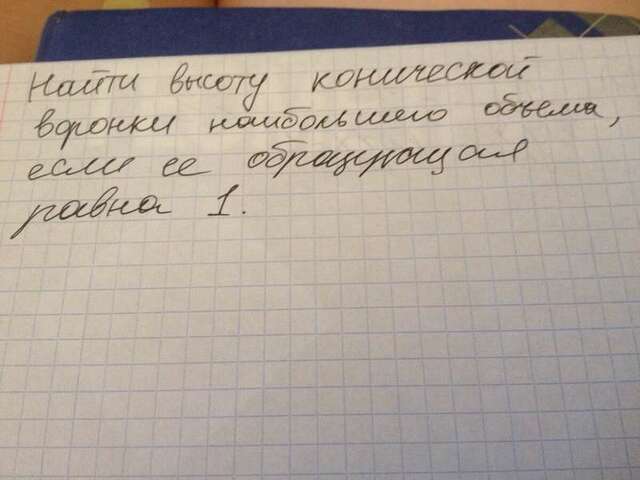 Найти высоту конической
воронки наибольшего объема,
если ее образующая
равна 1.